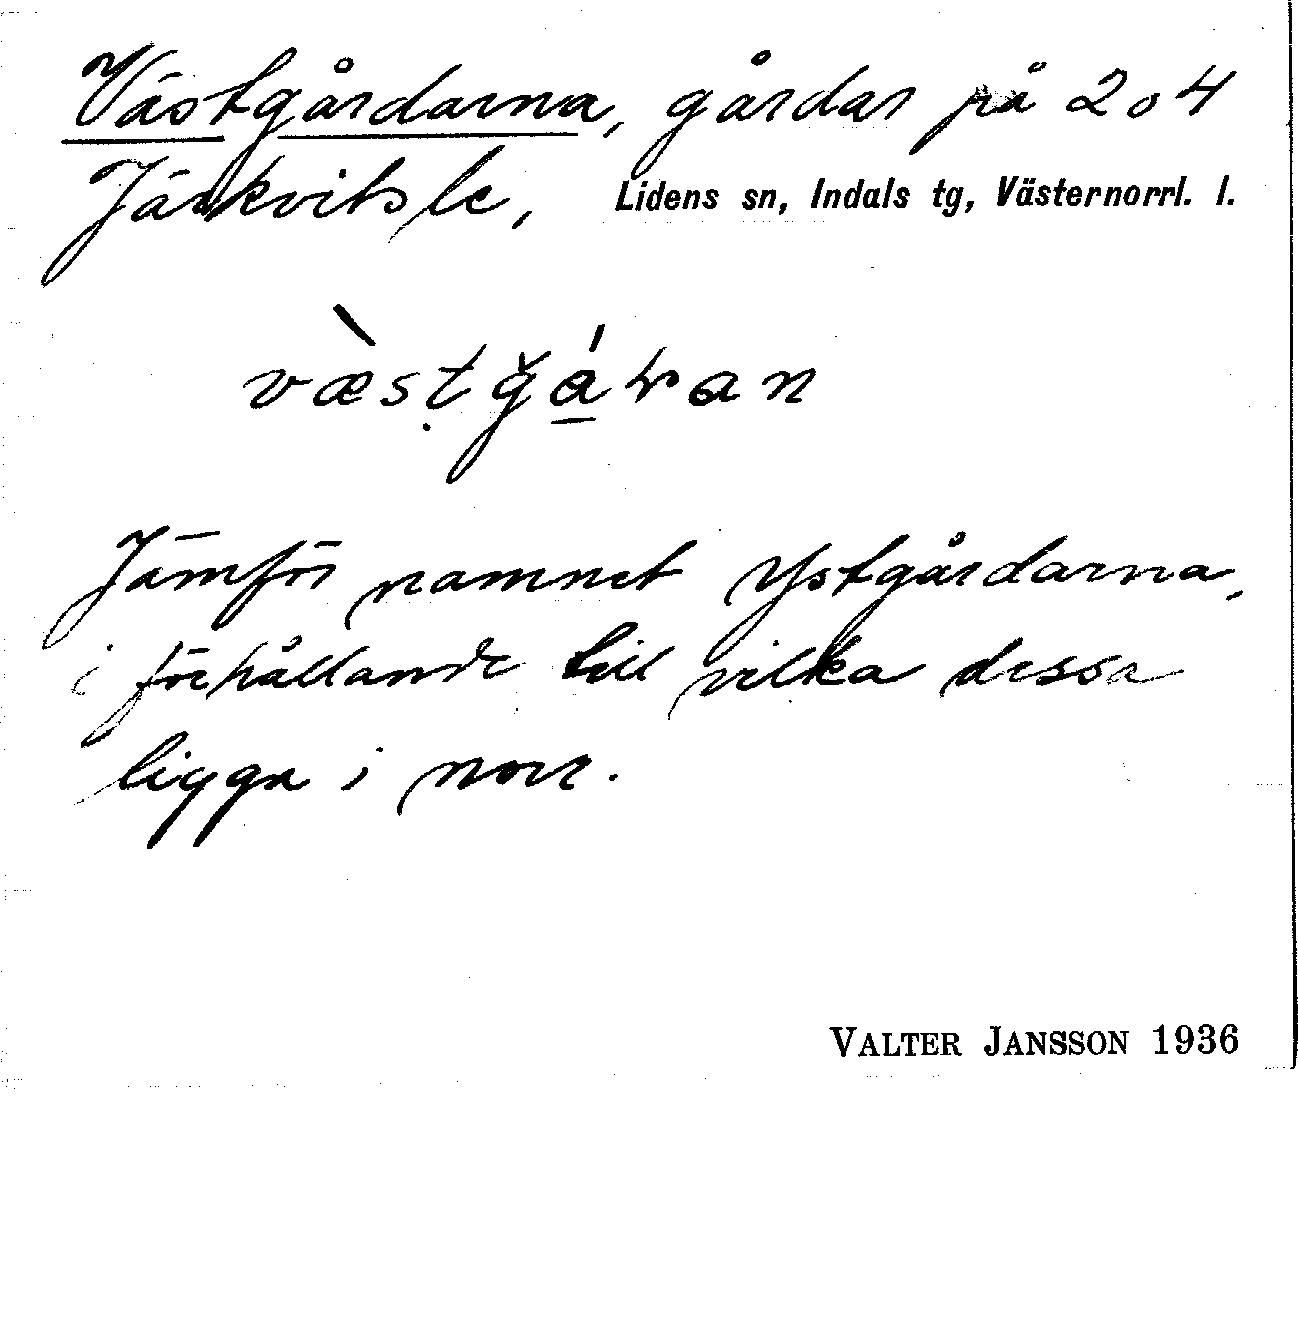 Västgårdarna, gårdar på 2 o 4
Järkvitsle, Lidens sn, Indals tg, Västernorrl. l.
væ̀stgáran
Jämför namnet Ystgårdarna,
i förhållande till vilka dessa
ligga i norr.
VALTER JANSSON 1936